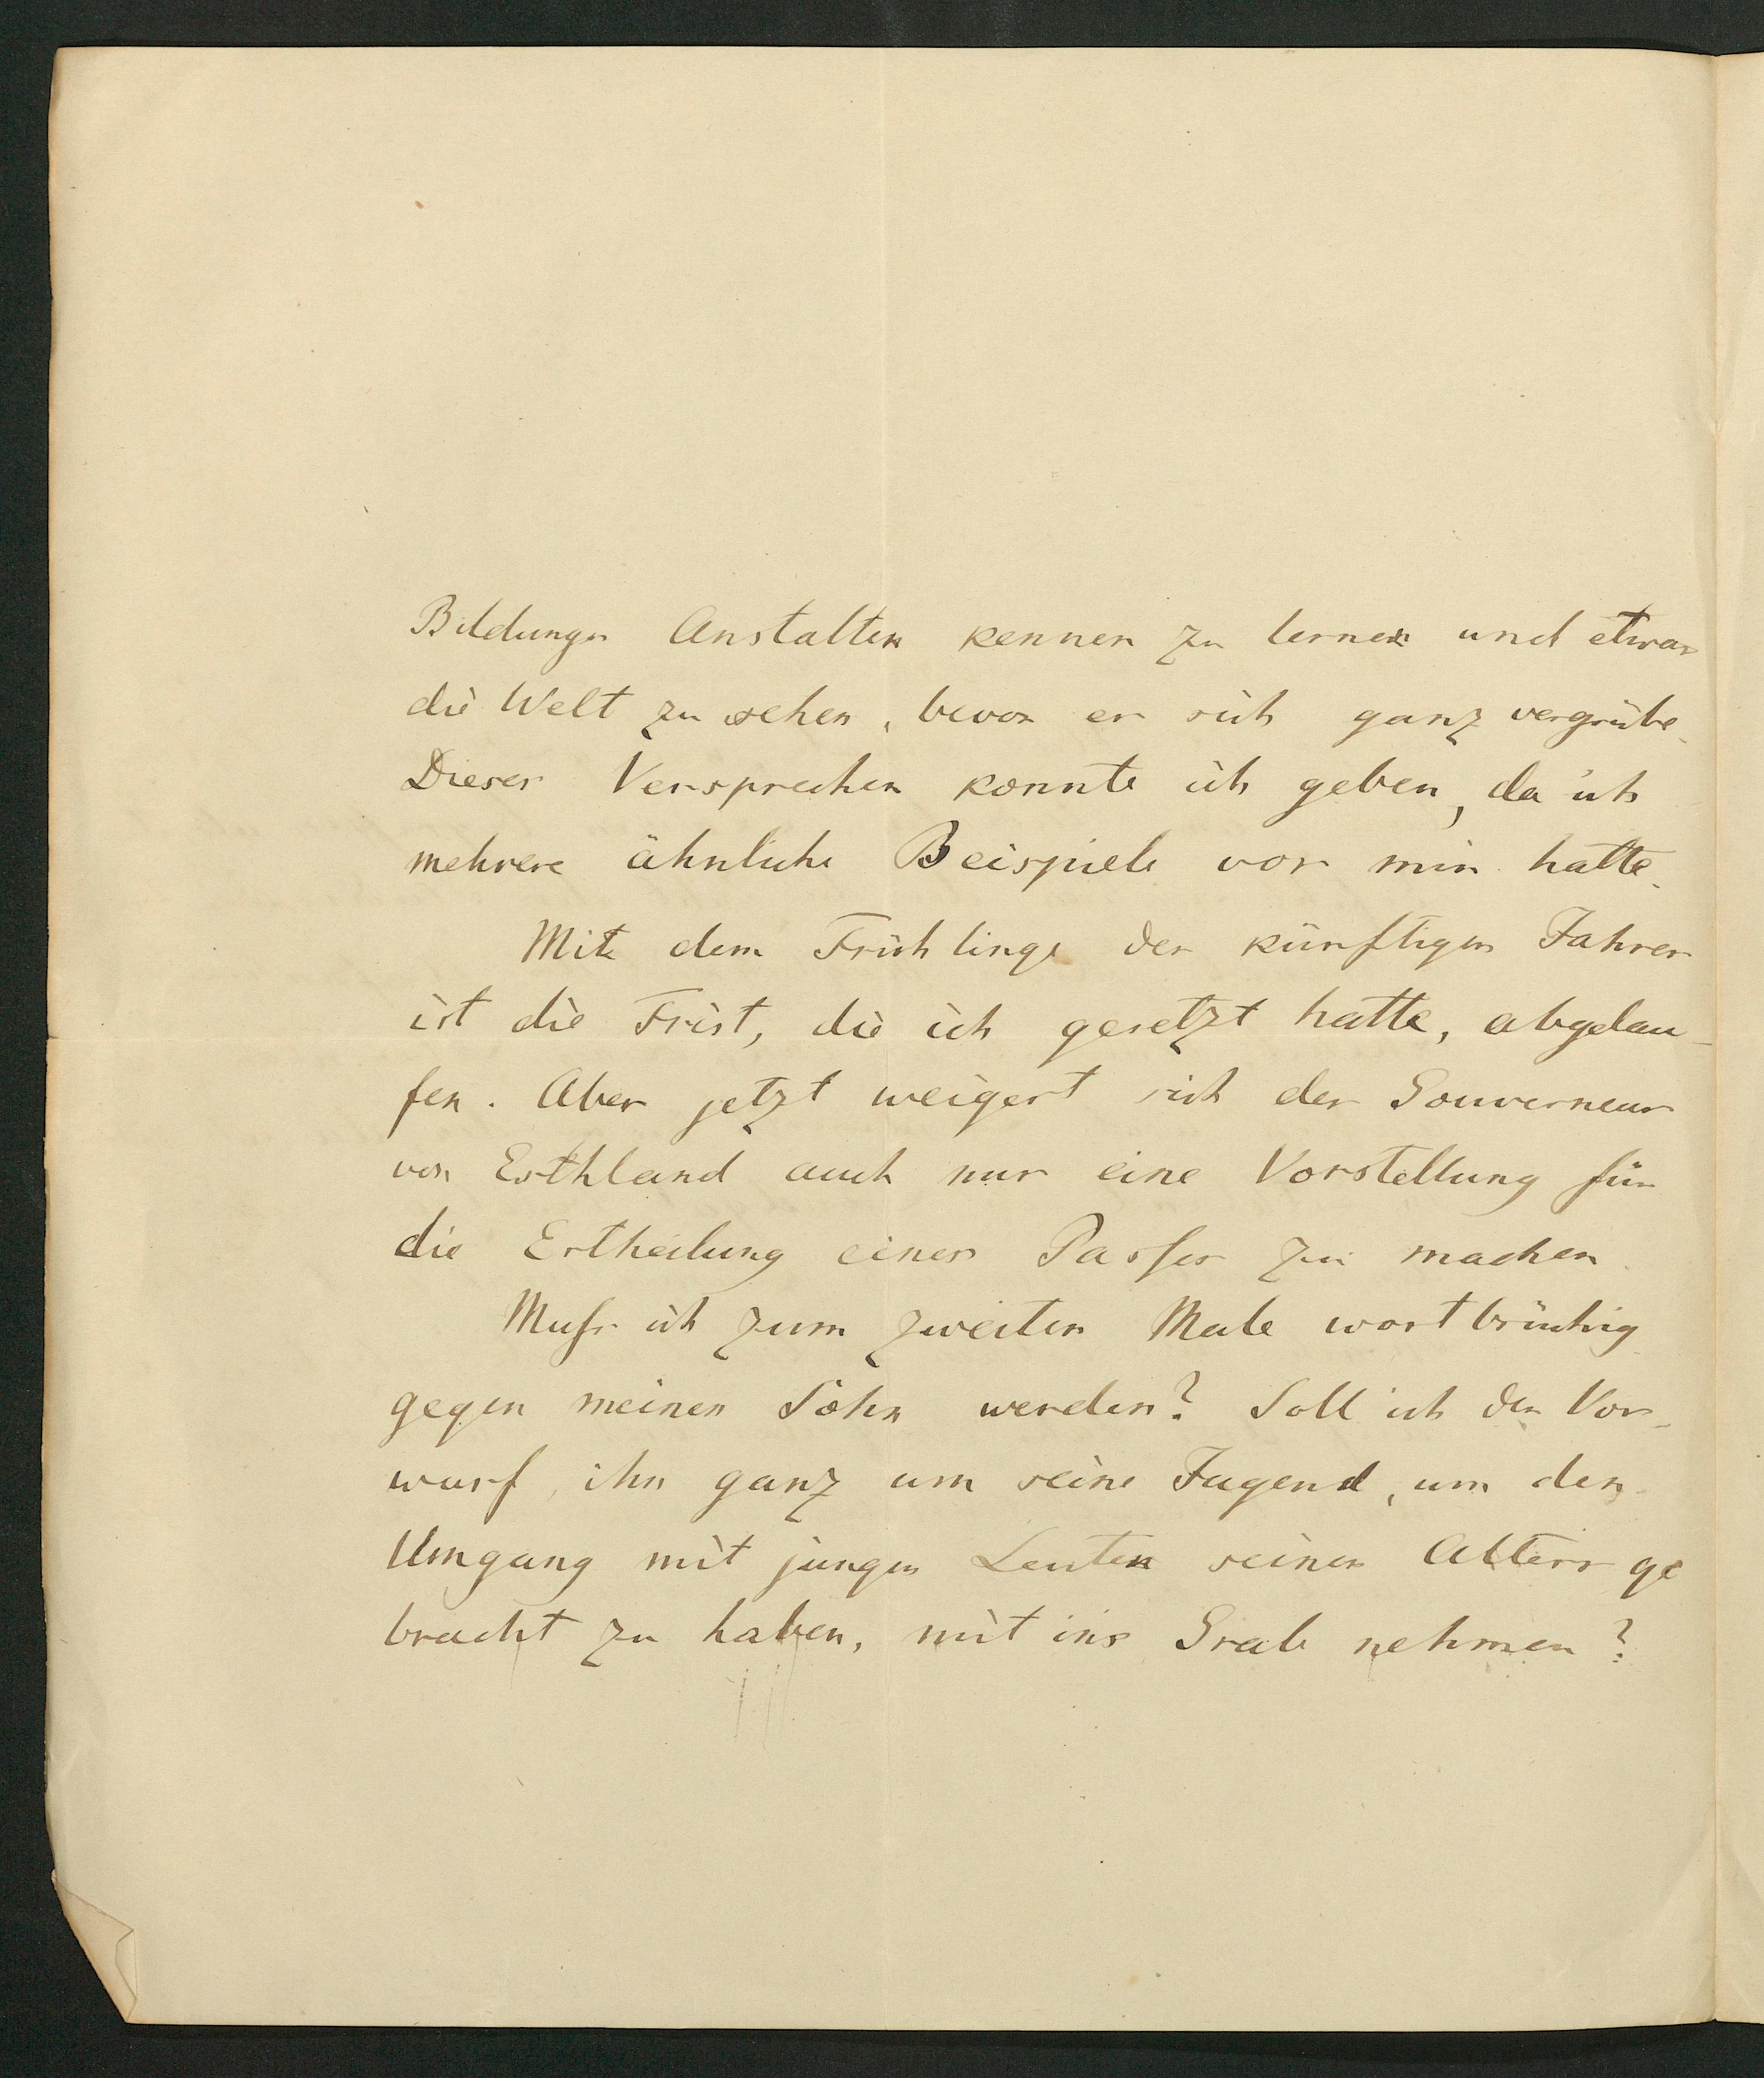 Bildungs Anstalten kennen zu lernen und etwas
die Welt zu sehen, bevor er sich ganz vergrübe.
Dieses Versprechen konnte ich geben, da ich
mehrere ähnliche Beispiele vor mir hatte.
Mit dem Frühlinge des künftigen Jahres
ist die Frist, die ich gesetzt hatte, abgelau-
fen. Aber jetzt weigert sich der Gouverneur
von Esthland auch nur eine Vorstellung für
die Ertheilung eines Passes zu machen.
Muss ich zum zweiten Male wortbrüchig
gegen meinen Sohn werden? Soll ich den Vor-
wurf, ihn ganz um seine Jugend, um den
Umgang mit jungen Leuten seines Alters ge
bracht zu haben, mit ins Grab nehmen?